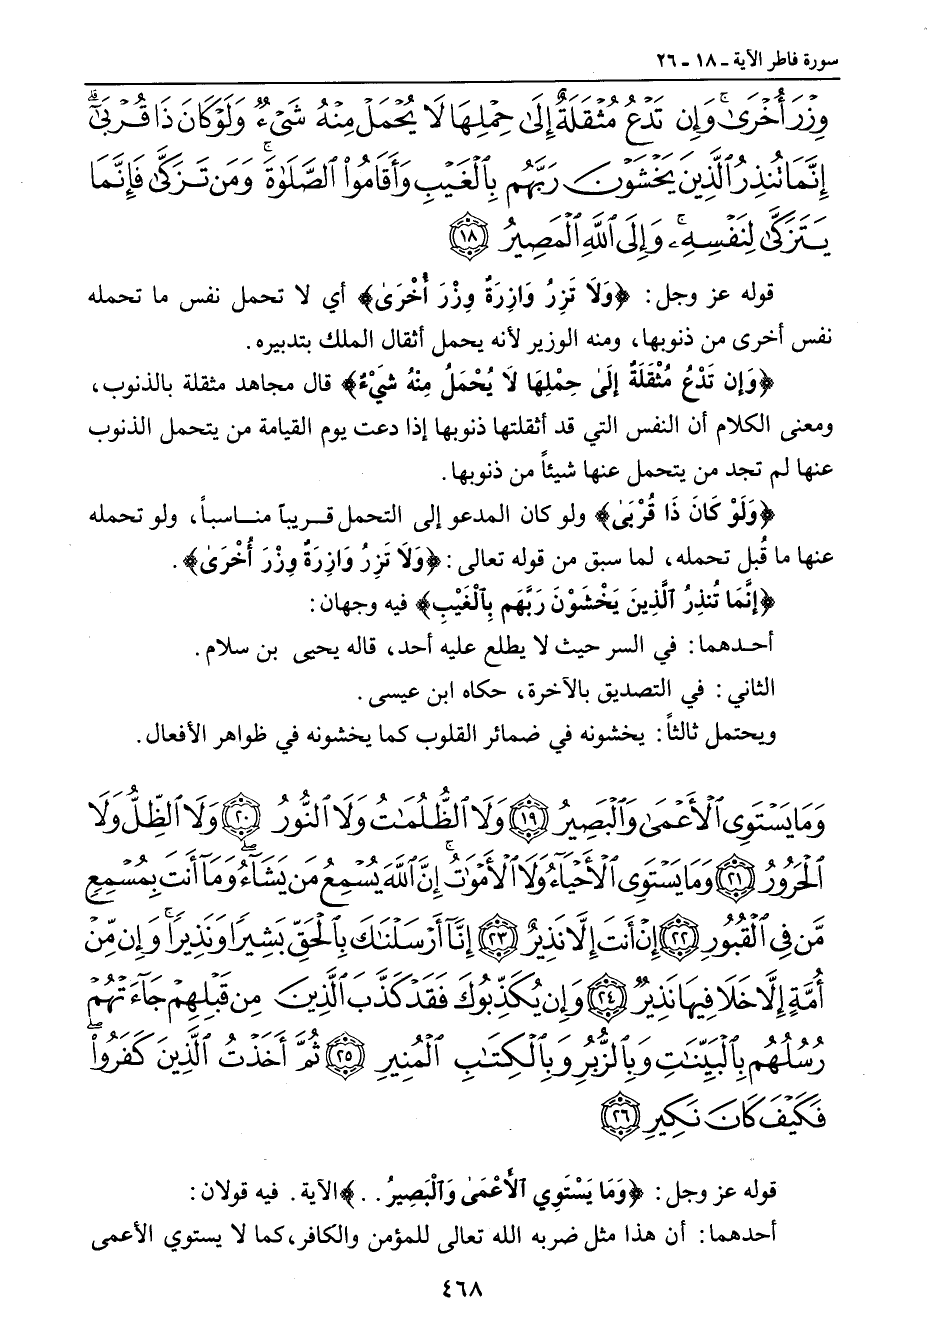 سورة فاطر الآية - ١٨ - ٢٦
وِزْرَ أُخْرَىٰ ۚ وَإِن تَدْعُ مُثْقَلَةٌ إِلَىٰ حِمْلِهَا لَا يُحْمَلْ مِنْهُ شَيْءٌ وَلَوْ كَانَ ذَا قُرْبَىٰ ۗ
إِنَّمَا تُنذِرُ الَّذِينَ يَخْشَوْنَ رَبَّهُم بِالْغَيْبِ وَأَقَامُوا الصَّلَوٰةَ ۚ وَمَن تَزَكَّىٰ فَإِنَّمَا
يَتَزَكَّىٰ لِنَفْسِهِ ۚ وَإِلَى اللَّهِ الْمَصِيرُ ١٨
قوله عز وجل: ﴿وَلَا تَزِرُ وَازِرَةٌ وِزْرَ أُخْرَىٰ﴾ أي لا تحمل نفس ما تحمله
نفس أخرى من ذنوبها، ومنه الوزير لأنه يحمل أثقال الملك بتدبيره.
﴿وَإِن تَدْعُ مُثْقَلَةٌ إِلَىٰ حِمْلِهَا لَا يُحْمَلُ مِنْهُ شَيْءٌ﴾ قال مجاهد مثقلة بالذنوب،
ومعنى الكلام أن النفس التي قد أثقلتها ذنوبها إذا دعت يوم القيامة من يتحمل الذنوب
عنها لم تجد من يتحمل عنها شيئاً من ذنوبها.
﴿وَلَوْ كَانَ ذَا قُرْبَىٰ﴾ ولو كان المدعو إلى التحمل قريباً مناسباً، ولو تحمله
عنها ما قُبل تحمله، لما سبق من قوله تعالى: ﴿وَلَا تَزِرُ وَازِرَةٌ وِزْرَ أُخْرَىٰ﴾.
﴿إِنَّمَا تُنذِرُ الَّذِينَ يَخْشَوْنَ رَبَّهُم بِالْغَيْبِ﴾ فيه وجهان:
أحدهما: في السر حيث لا يطلع عليه أحد، قاله يحيى بن سلام.
الثاني: في التصديق بالآخرة، حكاه ابن عيسى.
ويحتمل ثالثاً: يخشونه في ضمائر القلوب كما يخشونه في ظواهر الأفعال.
وَمَا يَسْتَوِي الْأَعْمَىٰ وَالْبَصِيرُ ١٩ وَلَا الظُّلُمَاتُ وَلَا النُّورُ ٢٠ وَلَا الظِّلُّ وَلَا
الْحَرُورُ ٢١ وَمَا يَسْتَوِي الْأَحْيَاءُ وَلَا الْأَمْوَاتُ ۚ إِنَّ اللَّهَ يُسْمِعُ مَن يَشَاءُ ۖ وَمَا أَنتَ بِمُسْمِعٍ
مَّن فِي الْقُبُورِ ٢٢ إِنْ أَنتَ إِلَّا نَذِيرٌ ٢٣ إِنَّا أَرْسَلْنَاكَ بِالْحَقِّ بَشِيرًا وَنَذِيرًا ۚ وَإِن مِّنْ
أُمَّةٍ إِلَّا خَلَا فِيهَا نَذِيرٌ ٢٤ وَإِن يُكَذِّبُوكَ فَقَدْ كَذَّبَ الَّذِينَ مِن قَبْلِهِمْ جَاءَتْهُمْ
رُسُلُهُم بِالْبَيِّنَاتِ وَبِالزُّبُرِ وَبِالْكِتَابِ الْمُنِيرِ ٢٥ ثُمَّ أَخَذْتُ الَّذِينَ كَفَرُوا ۖ
فَكَيْفَ كَانَ نَكِيرِ ٢٦
قوله عز وجل: ﴿وَمَا يَسْتَوِي الْأَعْمَىٰ وَالْبَصِيرُ. .﴾ الآية. فيه قولان:
أحدهما: أن هذا مثل ضربه الله تعالى للمؤمن والكافر، كما لا يستوي الأعمى
٤٦٨